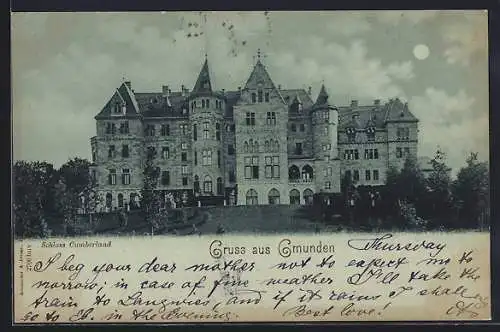 Schloss Cumberland
Gruss aus Gmunden
Thursday
I beg your dear mother not to expect me to
morrow; in case of fine weather I'll take the
train to Langwies, and if it rains I shall
go to I. in the Evening. Best love!